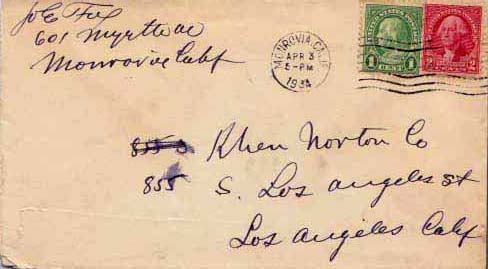 601 Myrtle av
Monrovia Calif
MONROVIA, CALIF.
APR 3
5-PM
1934
1 1
2 2
Rhen Norton Co
855 S. Los Angeles St
Los Angeles Calif